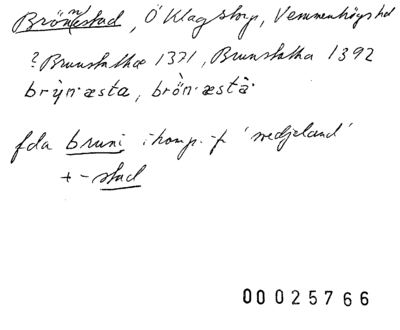 Brönnestad, Ö Klagstorp, Vemmenhögs hd
? Brunstathæ 1371, Brunstatha 1392
brỳn·æsta, brö̀n·æstà
fda bruni i komp. -f 'svedjeland'
+ -stad
00025766